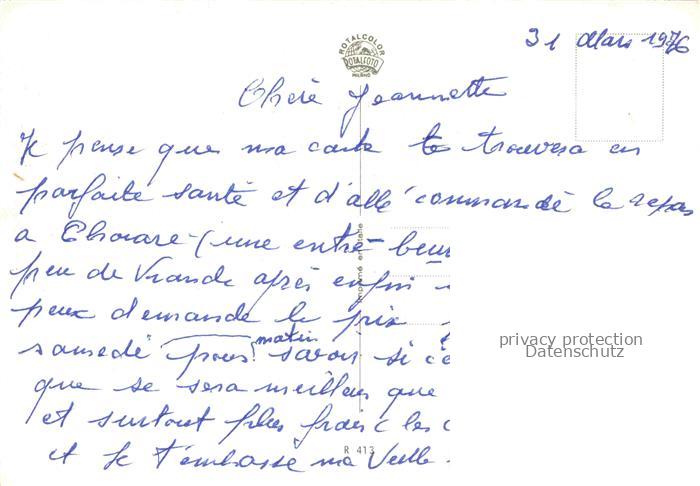 31 Mars 1976
ROTALCOLOR
ROTALFOTO
MILANO
Chère Jeannette
Je pense que ma carte te trouvera en
parfaite santé et d'allé commandé le repas
a (une entré
peu de Viande après enfin
peux demande le prix
matin
samedi pour savoir si
que se sera meilleur que
et surtout plus frais les
et Je t'embrasse ma
Imprimé en Italie
R 413
privacy protection
Datenschutz